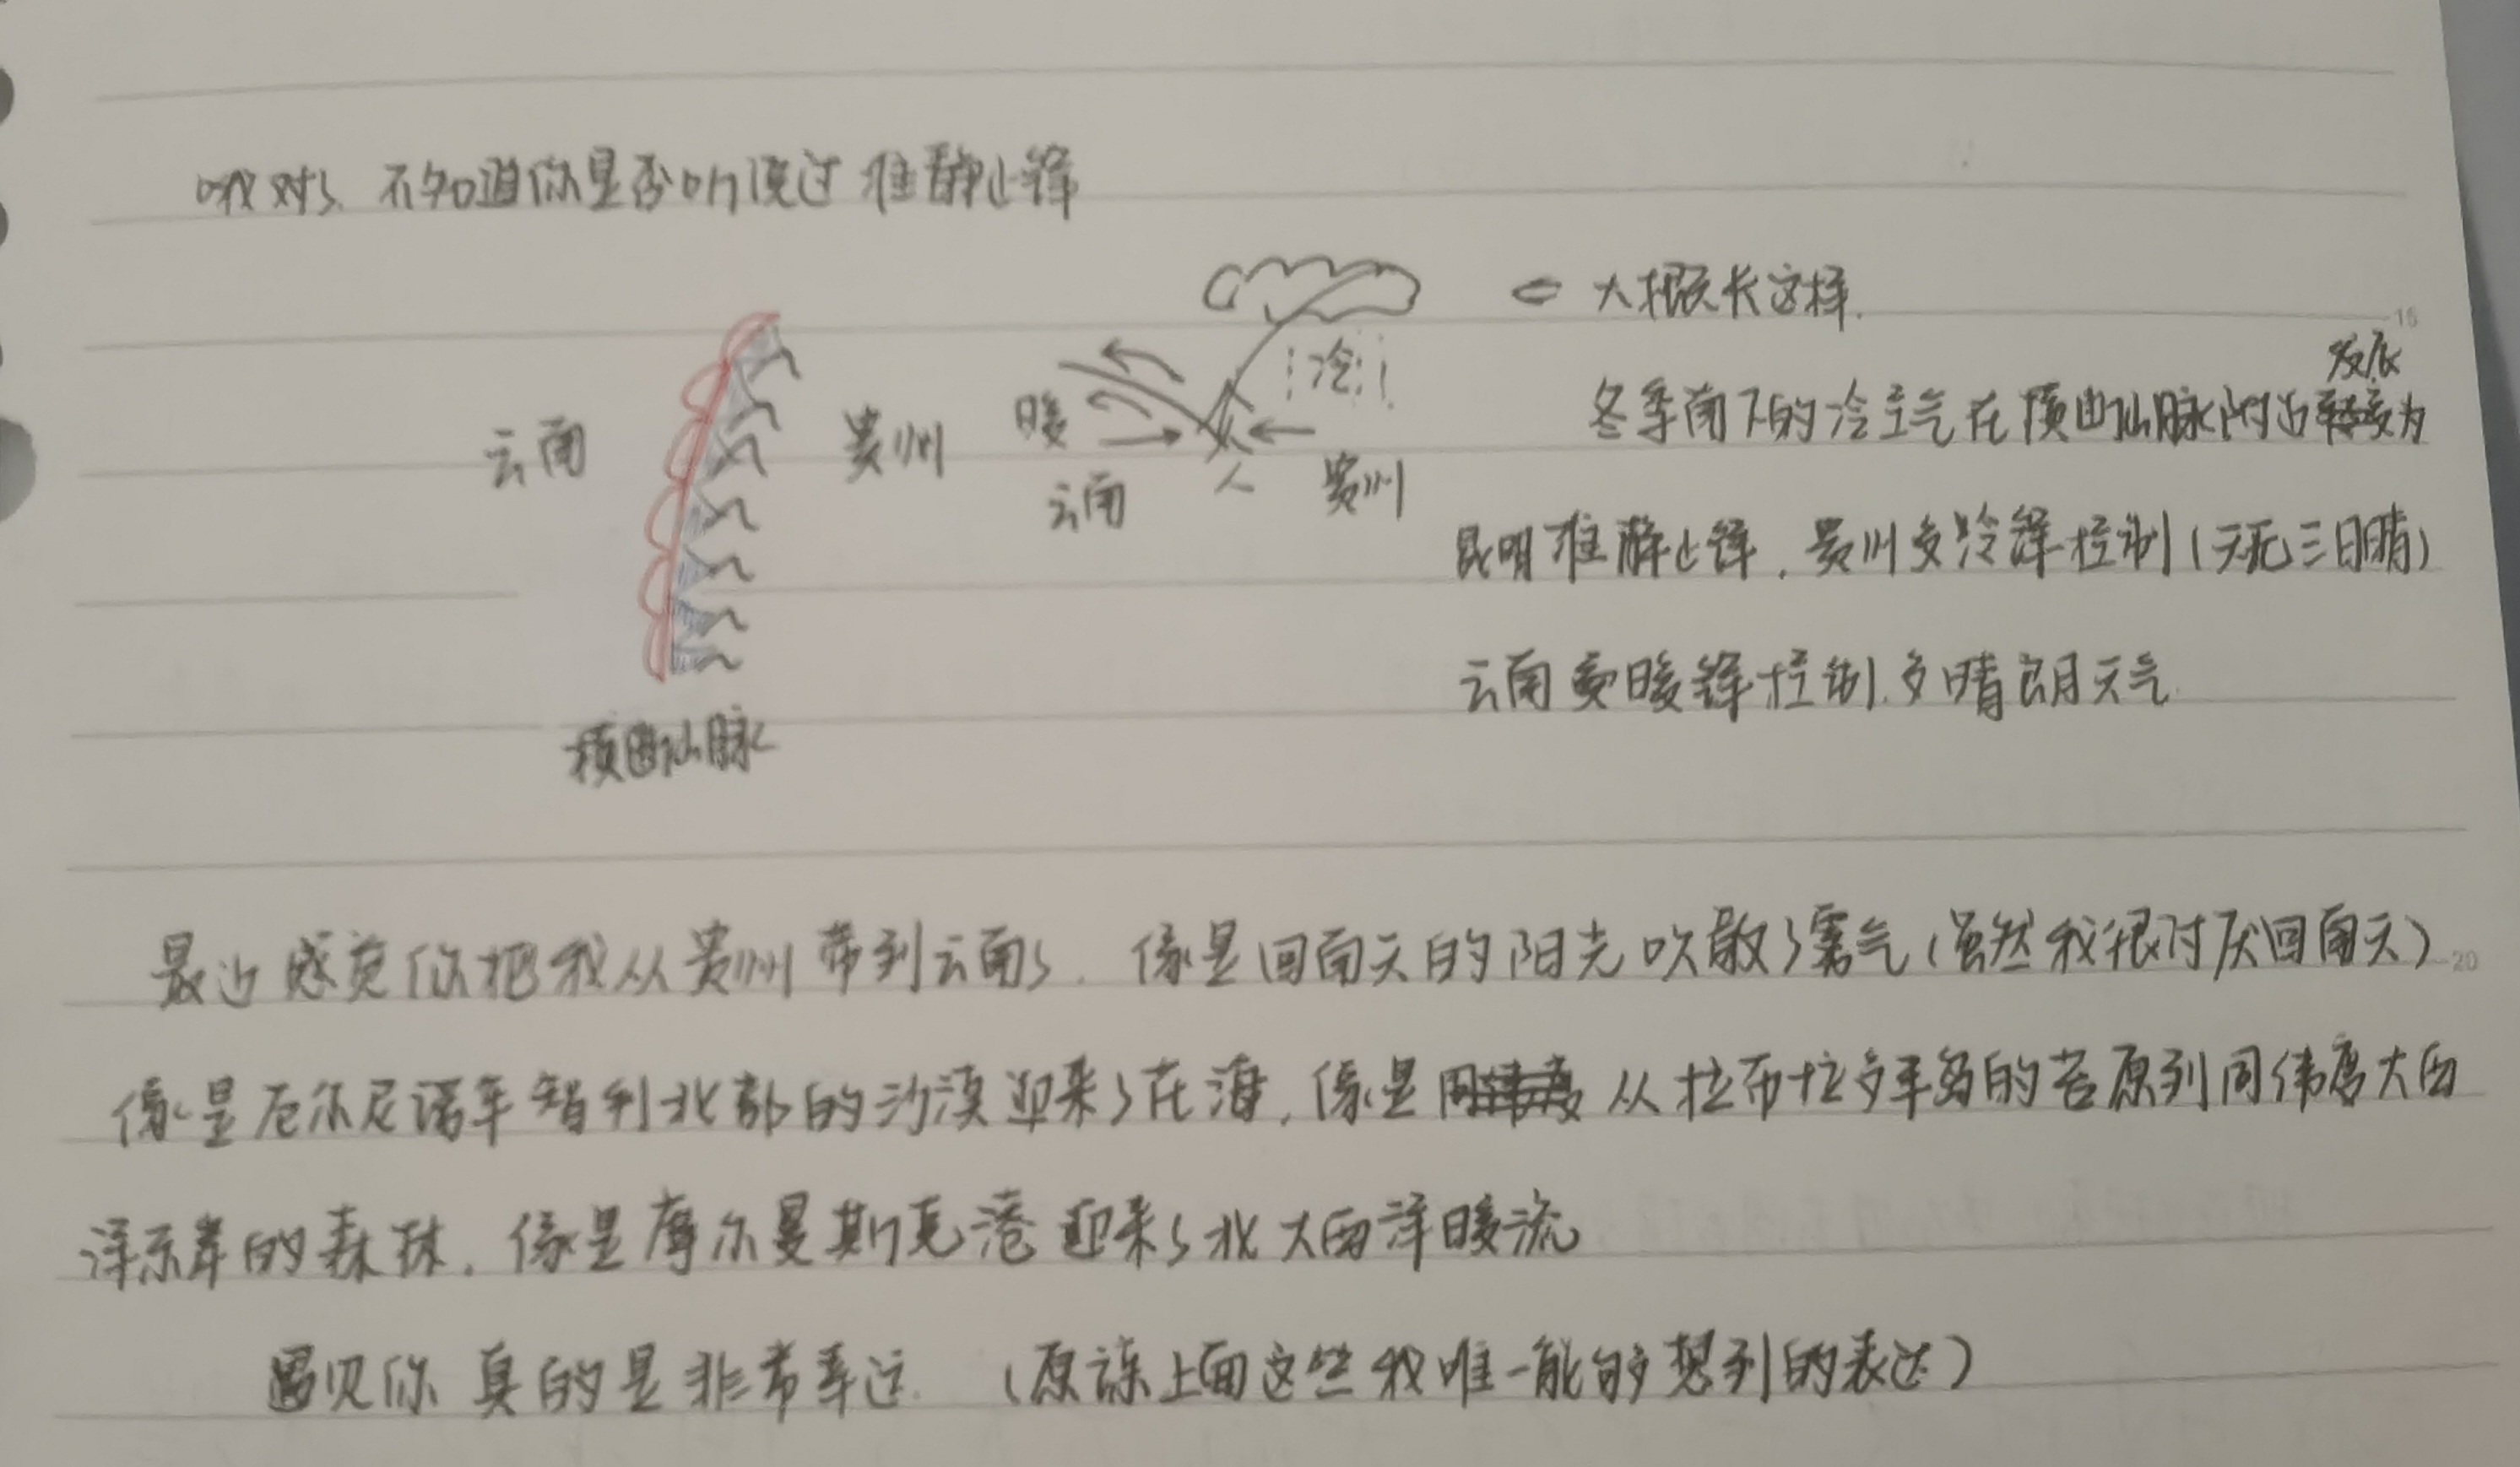 哦对了、不知道你是否听说过准静止锋
⇐ 大概长这样.
冷
暖
云南
贵州
云南
人
贵州
横断山脉
发展
冬季南下的冷空气在横断山脉附近为
昆明准静止锋,贵州受冷锋控制(天无三日晴)
云南受暖锋控制.多晴朗天气.
最近感觉你把我从贵州带到云南了.像是回南天的阳光吹散了雾气(虽然我很讨厌回南天)
像是厄尔尼诺年智利北部的沙漠迎来了花海,像是从拉布拉多半岛的苔原到同纬度大西
洋东岸的森林.像是摩尔曼斯克港迎来了北大西洋暖流
遇见你真的是非常幸运.(原谅上面这些我唯一能够想到的表达)
16
20